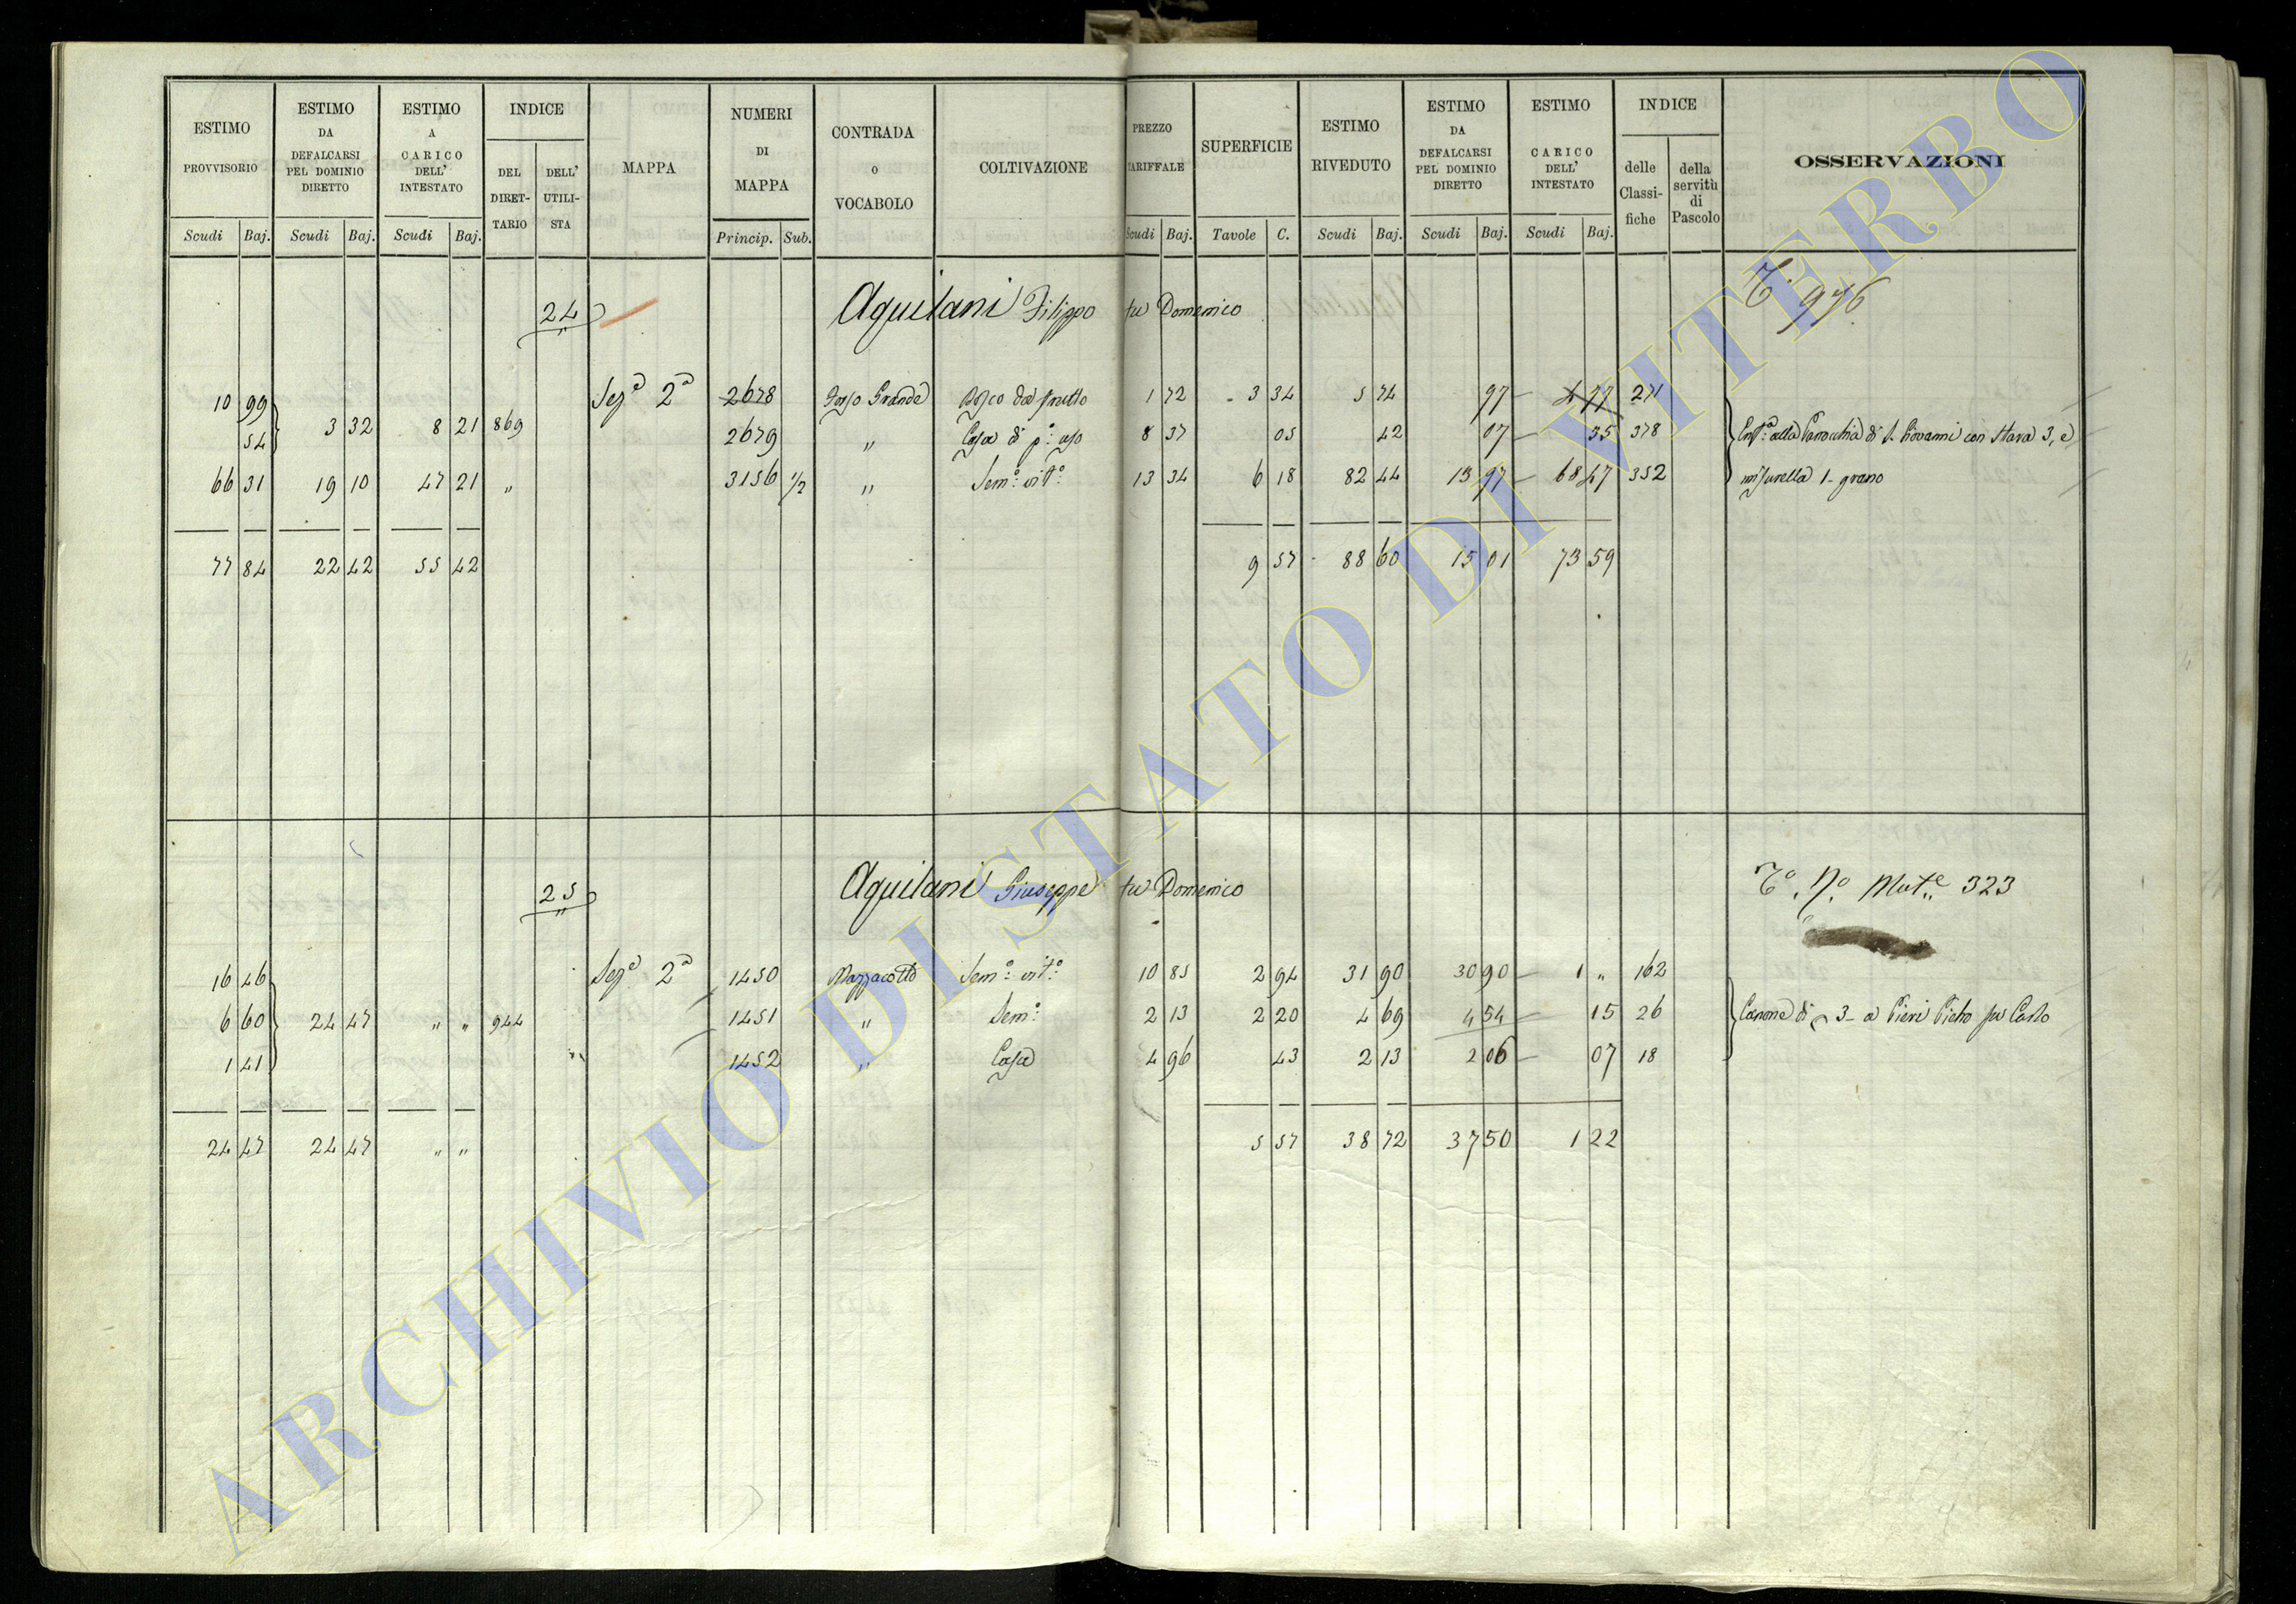 ESTIMO PROVVISORIO | ESTIMO DA DEFALCARSI PEL DOMINIO DIRETTO | ESTIMO A CARICO DELL' INTESTATO | INDICE | MAPPA | NUMERI DI MAPPA | CONTRADA o VOCABOLO | COLTIVAZIONE | PREZZO TARIFFALE | SUPERFICIE | ESTIMO RIVEDUTO | ESTIMO DA DEFALCARSI PEL DOMINIO DIRETTO | ESTIMO A CARICO DELL' INTESTATO | INDICE | OSSERVAZIONI
DEL DIRET-TARIO | DELL' UTILI-STA | delle Classi-fiche | della servitù di Pascolo
Scudi | Baj. | Scudi | Baj. | Scudi | Baj. | Princip. | Sub. | Scudi | Baj. | Tavole | C. | Scudi | Baj. | Scudi | Baj. | Scudi | Baj.
24 Aquilani Filippo fu Domenico
976
10 99 | 3 32 | 8 21 | 869 | Seze 2a | 2678 | Fosso Grande | Bosco da frutto | 1 72 | 3 34 | 5 74 | 97 | 4 77 | 271
54 | 2679 | " | Casa di po: uso | 8 37 | 05 | 42 | 07 | 35 | 378 | Enfa alla Parrocchia di S. Giovanni con Stara 3, e
66 31 | 19 10 | 47 21 | " | 3156 1/2 | " | Semo: vito: | 13 34 | 6 18 | 82 44 | 13 97 | 68 47 | 352 | misurella 1 - grano
77 84 | 22 42 | 55 42 | 9 57 | 88 60 | 15 01 | 73 59
25 Aquilani Giuseppe fu Domenico
To. No. Mute. 323
16 46 | Seze 2a | 1450 | Mazzacotto | Semo: vito: | 10 85 | 2 94 | 31 90 | 30 90 | 1 " | 162
6 60 | 24 47 | " " | 944 | 1451 | " | Semo: | 2 13 | 2 20 | 4 69 | 4 54 | 15 | 26 | Canone di 3 - a Pieri Pietro fu Carlo
1 41 | 1452 | " | Casa | 4 96 | 43 | 2 13 | 2 06 | 07 | 18
24 47 | 24 47 | " " | 5 57 | 38 72 | 37 50 | 1 22
ARCHIVIO DI STATO DI VITERBO